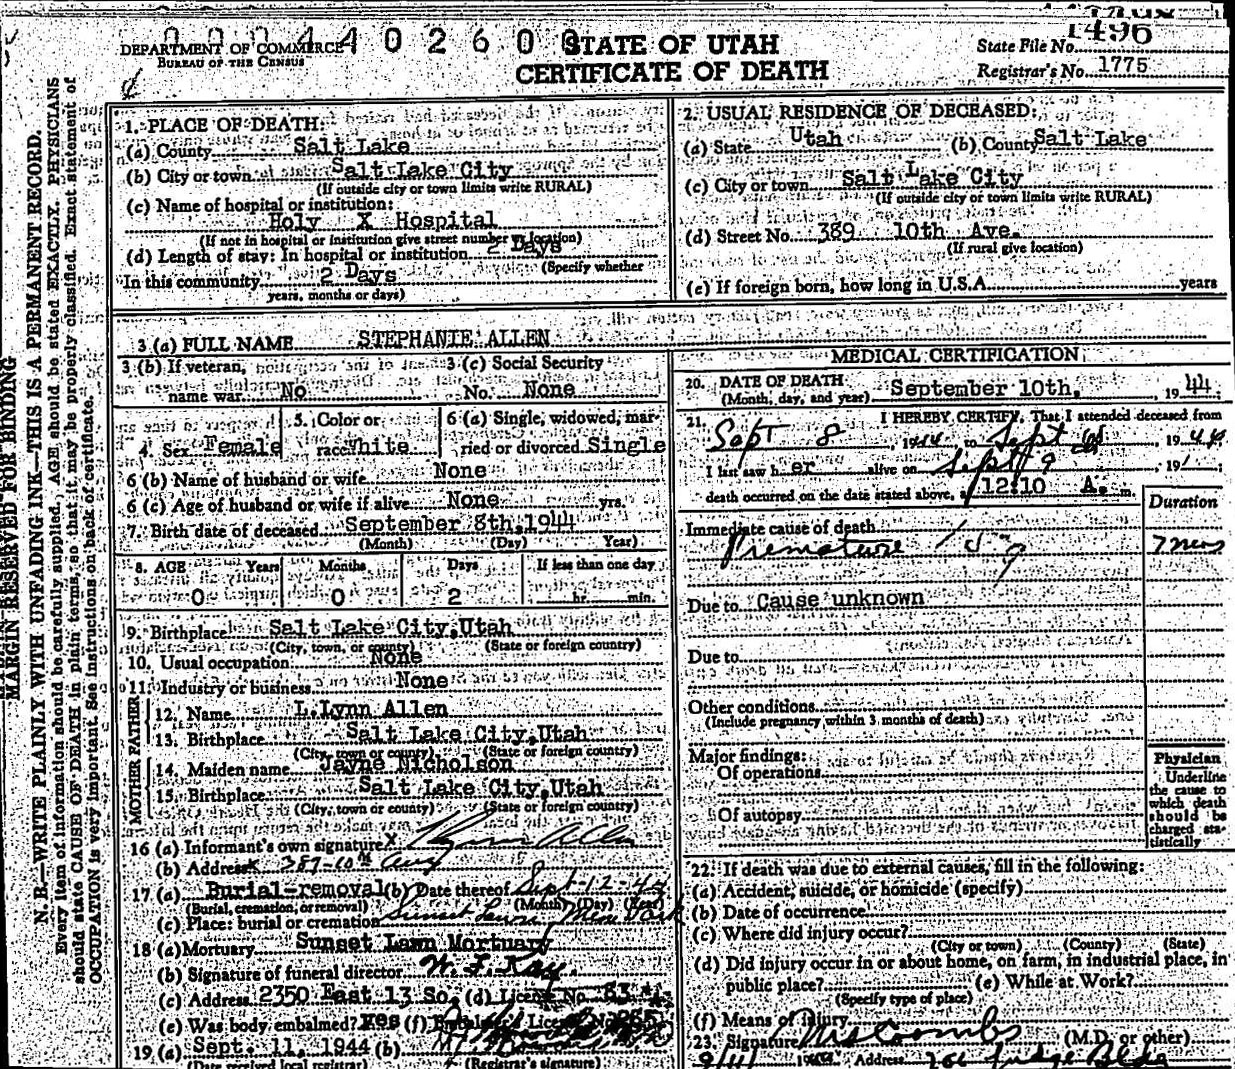 0 0 0 4 4 0 2 6 0 0
1496
DEPARTMENT OF COMMERCE
BUREAU OF THE CENSUS
STATE OF UTAH
CERTIFICATE OF DEATH
State File No.
Registrar's No. 1775
MARGIN RESERVED FOR BINDING
N. B.—WRITE PLAINLY WITH UNFADING INK—THIS IS A PERMANENT RECORD.
Every item of information should be carefully supplied. AGE should be stated EXACTLY. PHYSICIANS
should state CAUSE OF DEATH in plain terms, so that it may be properly classified. Exact statement of
OCCUPATION is very important. See instructions on back of certificate.
1. PLACE OF DEATH:
(a) County Salt Lake
(b) City or town Salt Lake City
(If outside city or town limits write RURAL)
(c) Name of hospital or institution:
Holy X Hospital
(If not in hospital or institution give street number or location)
(d) Length of stay: In hospital or institution 2 Days
(Specify whether
In this community 2 Days
years, months or days)
2. USUAL RESIDENCE OF DECEASED:
(a) State Utah (b) County Salt Lake
(c) City or town Salt Lake City
(If outside city or town limits write RURAL)
(d) Street No. 389 10th Ave.
(If rural give location)
(e) If foreign born, how long in U.S.A. years
3 (a) FULL NAME STEPHANIE ALLEN
3 (b) If veteran, name war No
3 (c) Social Security No. None
4. Sex Female
5. Color or race White
6 (a) Single, widowed, married or divorced Single
6 (b) Name of husband or wife None
6 (c) Age of husband or wife if alive None yrs.
7. Birth date of deceased September 8th, 1944
(Month) (Day) Year)
8. AGE Years Months Days If less than one day
0 0 2 hr. min.
9. Birthplace Salt Lake City, Utah
(City, town, or county) (State or foreign country)
10. Usual occupation None
11. Industry or business None
FATHER
12. Name L. Lynn Allen
13. Birthplace Salt Lake City, Utah
(City, town or county) (State or foreign country)
MOTHER
14. Maiden name Jayne Nicholson
15. Birthplace Salt Lake City, Utah
(City, town or county) (State or foreign country)
16 (a) Informant's own signature X Lynn Allen
(b) Address X 389-10th Ave
17 (a) Burial-removal (b) Date thereof Sept-12-44
(Burial, cremation, or removal) (Month) (Day) (Year)
(c) Place: burial or cremation Sunset Lawn Mem. Park
18 (a) Mortuary Sunset Lawn Mortuary
(b) Signature of funeral director
(c) Address 2350 East 13 So. (d) License No. 83
(e) Was body embalmed? Yes (f) Embalmer's License No.
19 (a) Sept. 11, 1944 (b)
(Date received local registrar) (Registrar's signature)
MEDICAL CERTIFICATION
20. DATE OF DEATH September 10th, 1944
(Month, day, and year)
21. I HEREBY CERTIFY, That I attended deceased from
Sept 8 1944 to Sept 1944
I last saw her alive on Sept 9 19
death occurred on the date stated above, a 12:10 A. m.
Duration
Immediate cause of death
Premature
7 mos
Due to Cause unknown
Due to
Other conditions
(Include pregnancy within 3 months of death)
Major findings:
Of operations
Of autopsy
Physician
Underline
the cause to
which death
should be
charged sta-
tistically
22. If death was due to external causes, fill in the following:
(a) Accident, suicide, or homicide (specify)
(b) Date of occurrence
(c) Where did injury occur?
(City or town) (County) (State)
(d) Did injury occur in or about home, on farm, in industrial place, in
public place? (e) While at Work?
(Specify type of place)
(f) Means of Injury
23. Signature (M.D. or other)
9/11 1944 Address Judge Bldg